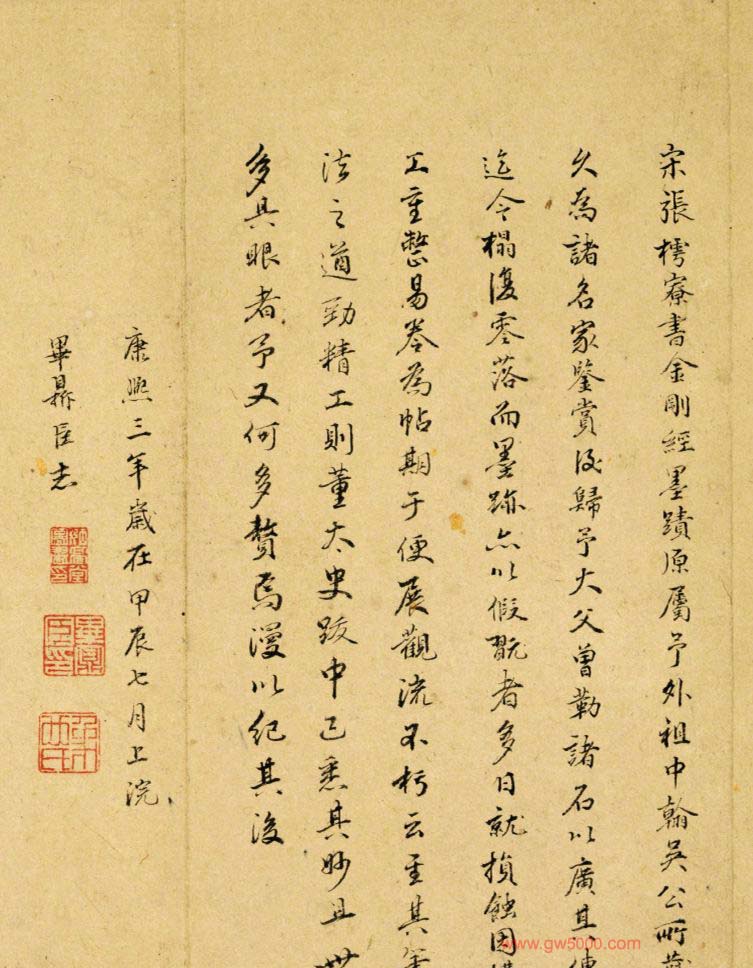 宋張樗寮書金剛經墨蹟原屬予外祖中翰吳公所藏
久為諸名家鑒賞後歸予大父曾勒諸石以廣其傳
迄今榻復零落而墨跡亦以假翫者多日就損蝕因
工重整易卷為帖期于便展觀流不朽云至其筆
法之遒勁精工則董太史跋中已悉其妙且世
多具眼者予又何多贅焉漫以紀其後
康熙三年歲在甲辰七月上浣
畢鼎臣志
www.gw5000.com